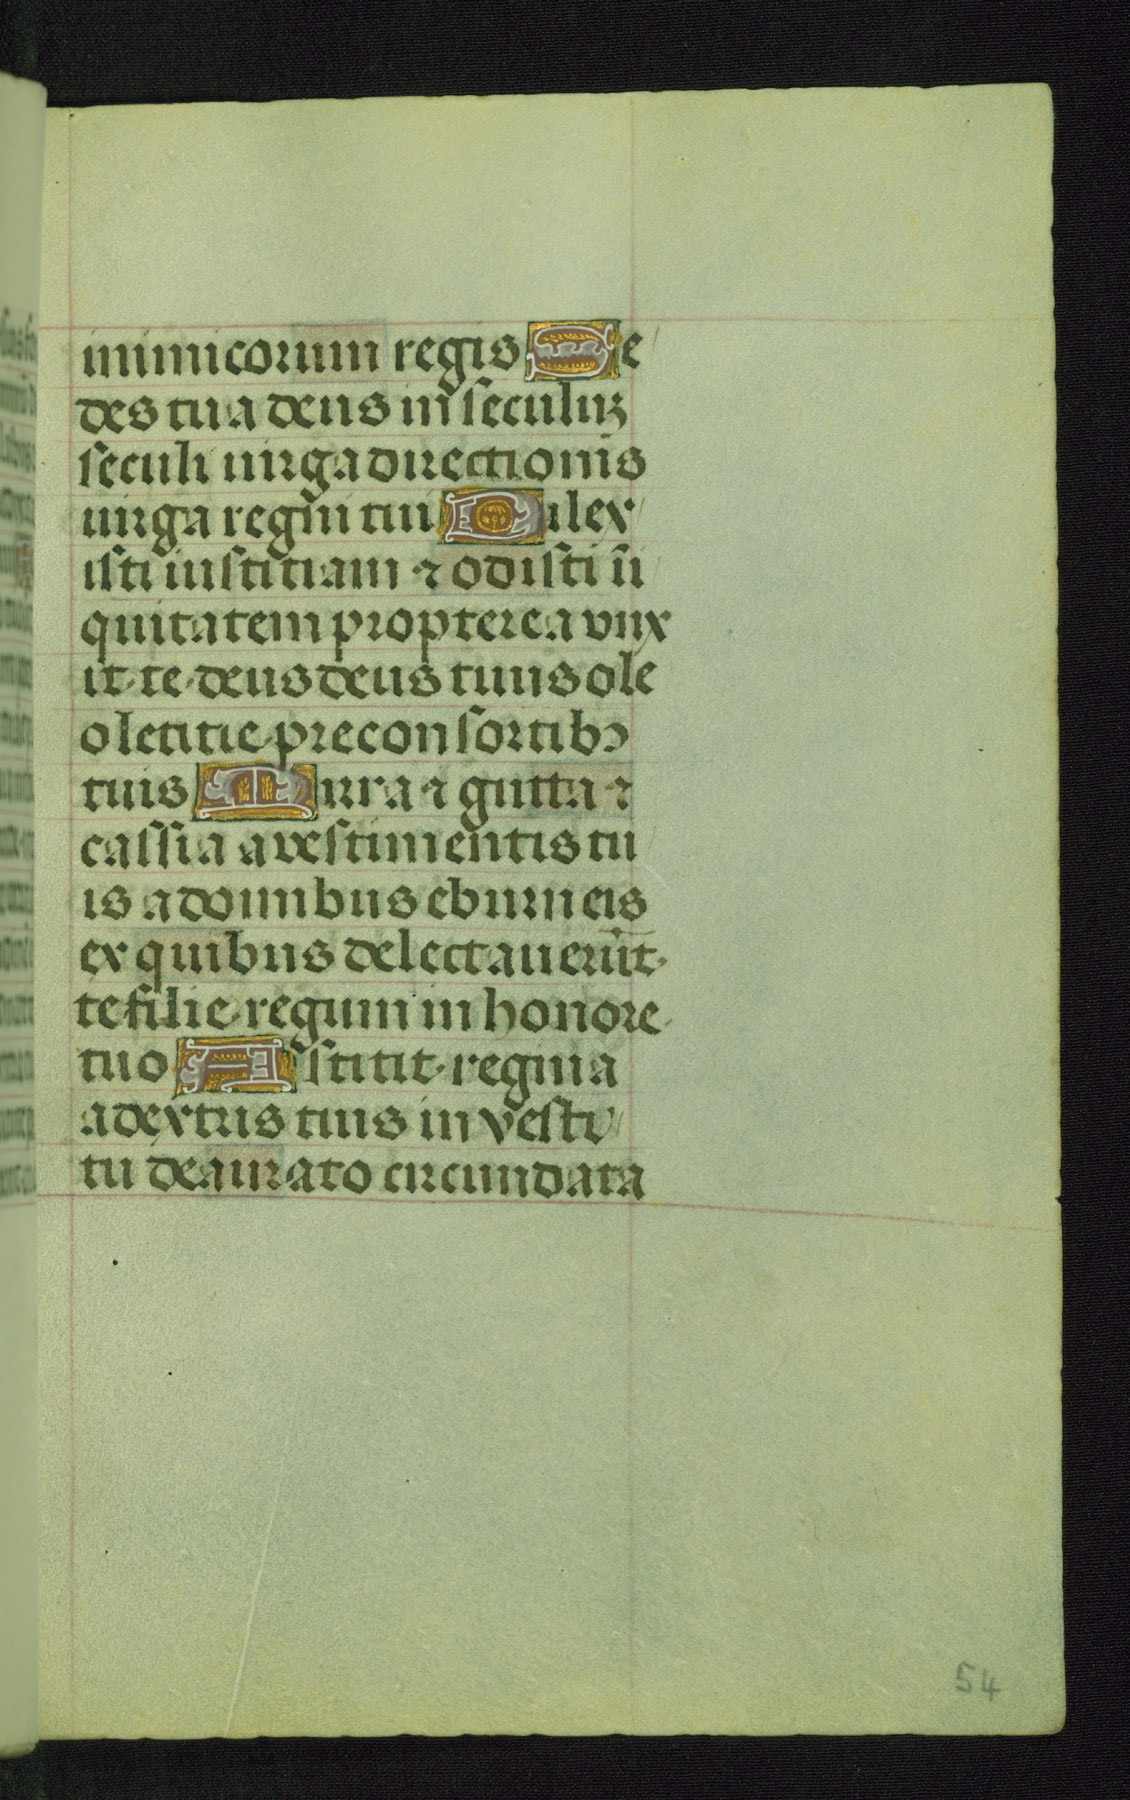 inimicorum regis Se
des tua deus in seculuʒ
seculi uirga directionis
uirga regni tui Dilex
isti iustitiam ⁊ odisti ini
quitatem propterea vnx
it te deus deus tuus ole
o letitie pre consortibꝰ
tuis Mirra ⁊ gutta ⁊
cassia a vestimentis tu
is a domibus eburneis
ex quibus delectauerūt
te filie regum in honore
tuo Astitit regina
a dextris tuis in vesti
tu deaurato circundata
54